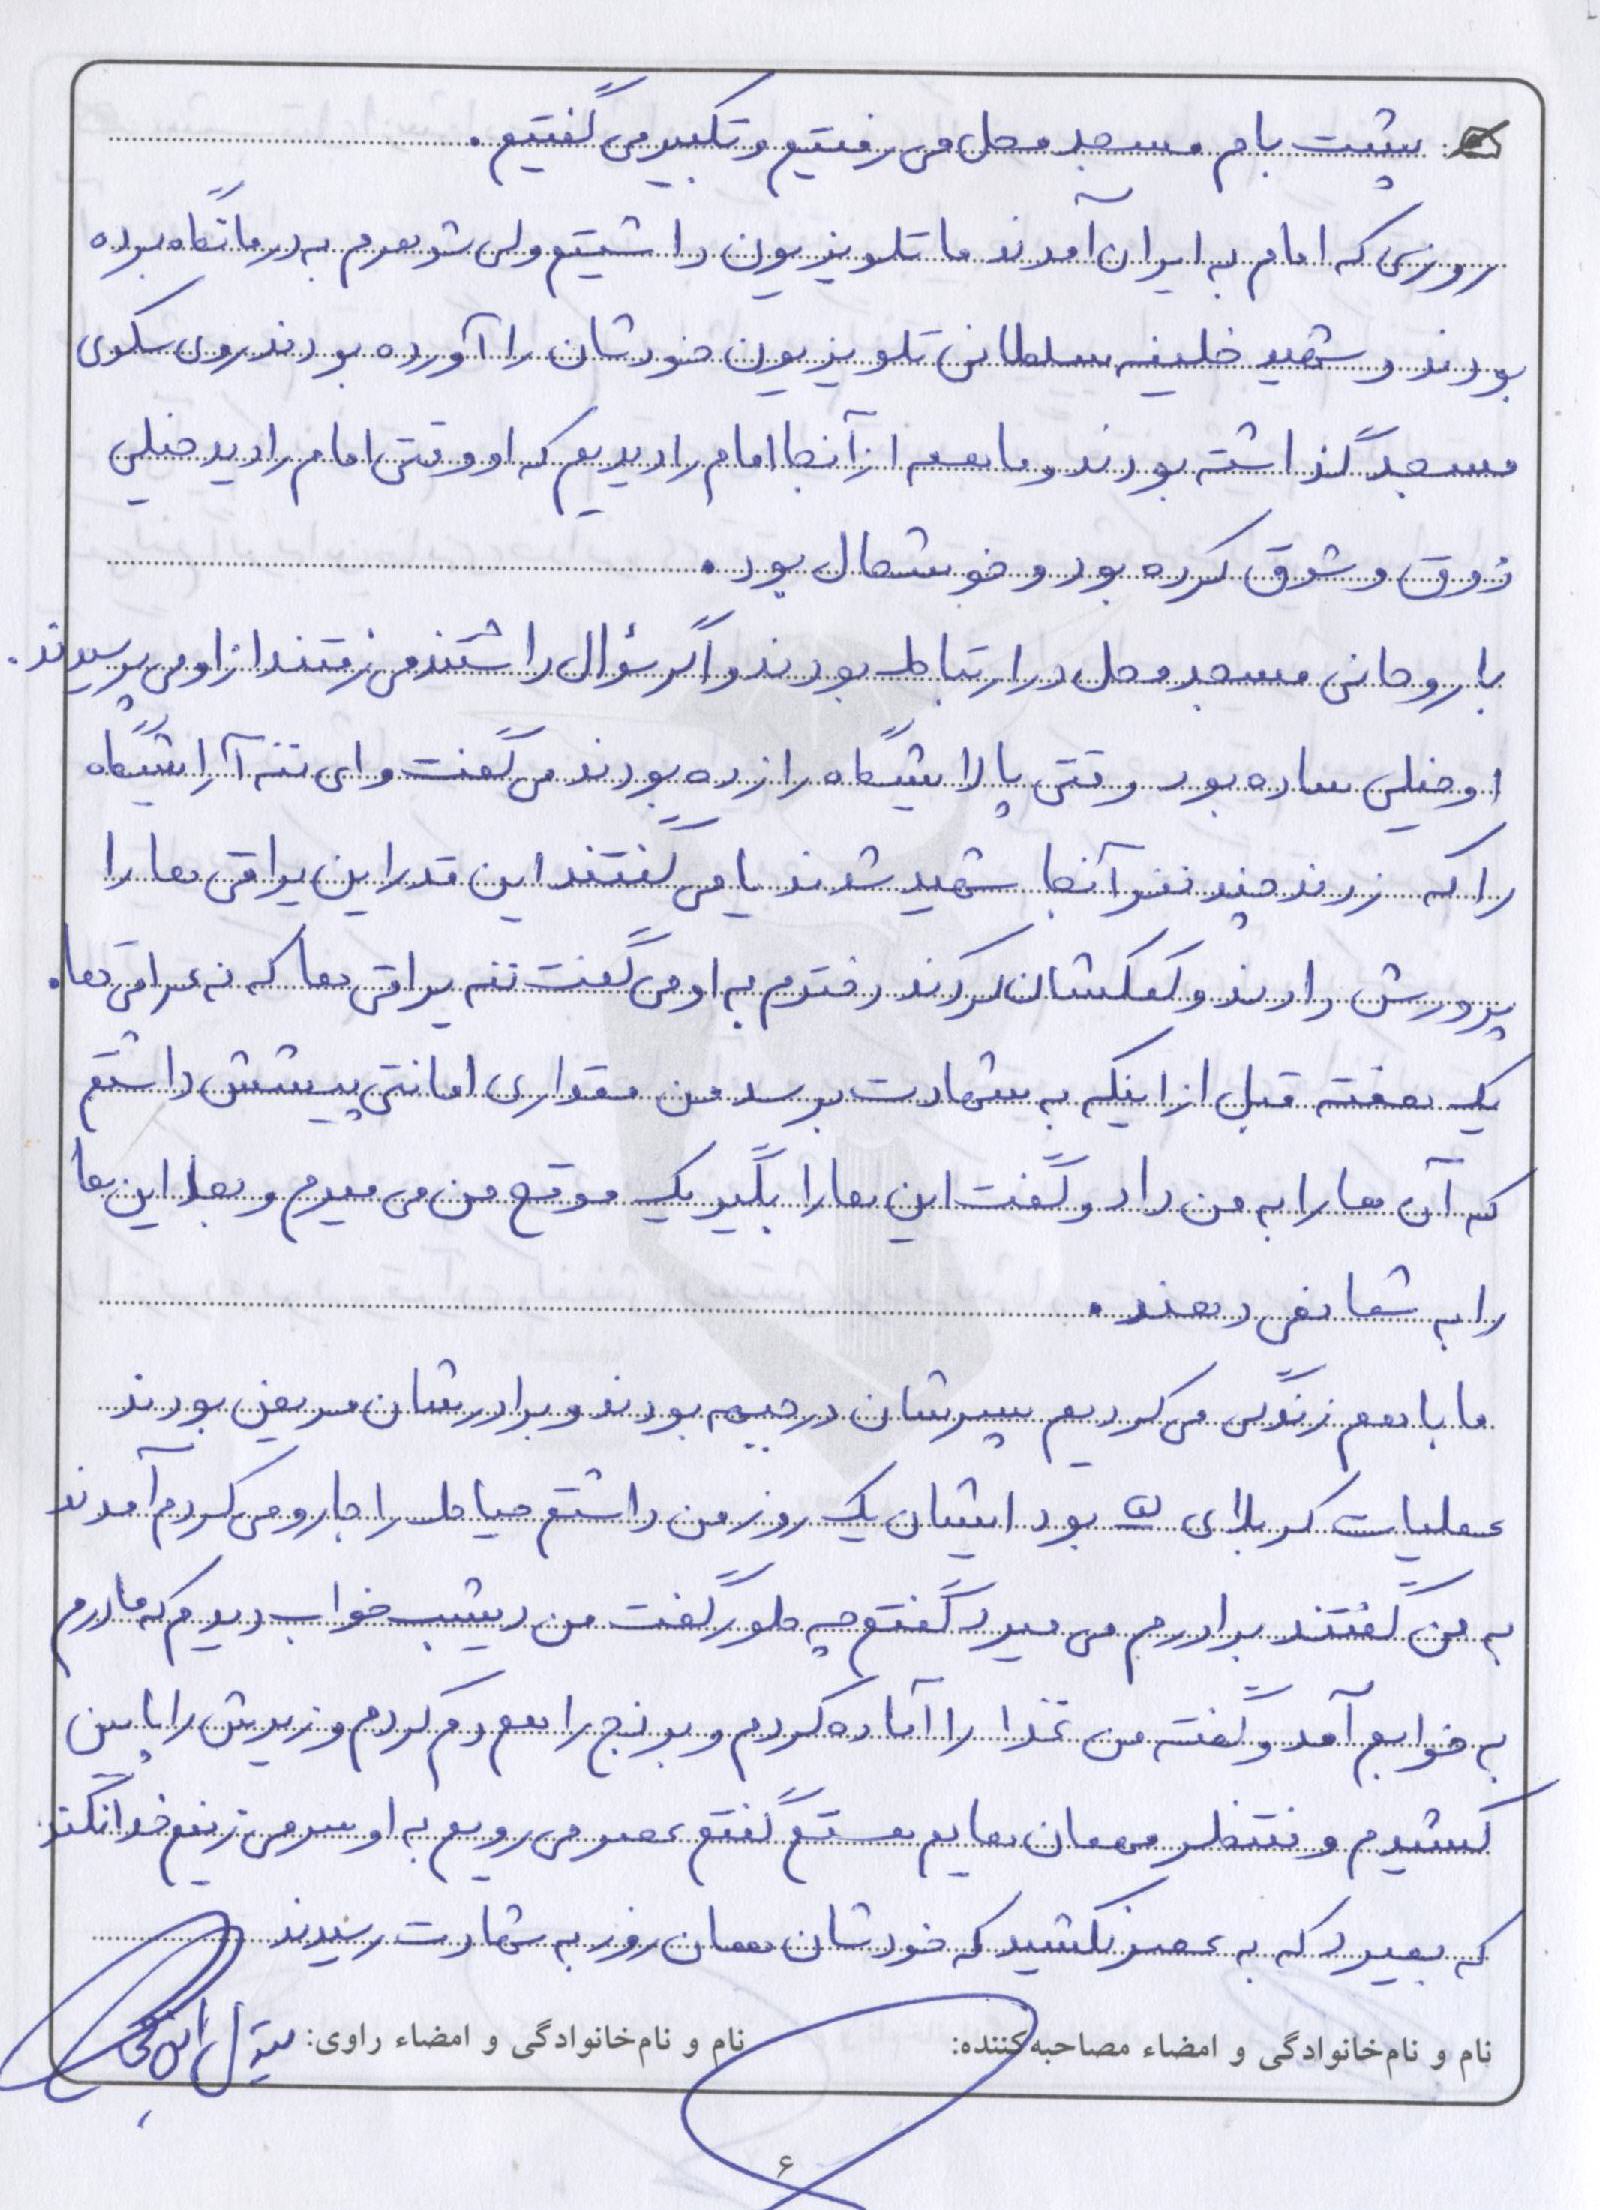 پشت بام مسجد محل می رفتیم و تکبیر می گفتیم.
روزی که امام به ایران آمدند ما تلویزیون داشتیم ولی شوهرم به درمانگاه برده
بودند و شهید خلیفه سلطانی تلویزیون خودشان را آورده بودند روی سکوی
مسجد گذاشته بودند و ما همه از آنجا امام را دیدیم که او وقتی امام را دید خیلی
ذوق و شوق کرده بود و خوشحال بود.
با روحانی مسجد محل در ارتباط بودند و اگر سؤال داشتند می رفتند از او می پرسیدند.
او خیلی ساده بود وقتی پالایشگاه را زده بودند می گفت وای ننه آرایشگاه
را که زدند چند نفر آنجا شهید شدند یا می گفتند این قدر این یراقی ها را
پرورش دادند و کمکشان کردند دخترم به او می گفت ننه یراقی ها که نه عراقی ها.
یک هفته قبل از اینکه به شهادت برسد من مقداری امانتی پیشش داشتم
که آن ها را به من داد و گفت این ها را بگیر یک موقع من می میرم و بعدا این ها
را به شما نمی دهند.
ما با هم زندگی می کردیم پسرشان در جبهه بودند و برادرشان مریض بودند
عملیات کربلای ۵ بود ایشان یک روز من داشتم حیاط را جارو می کردم آمدند
به من گفتند برادرم می میرد گفتم چه طور گفت من دیشب خواب دیدم که مادرم
به خوابم آمد و گفته من غذا را آماده کردم و برنج را هم دم کردم و زیرش را پایین
کشیدم و منتظر مهمان هایم هستم گفتم عصر می رویم به او سر می زنیم خدا نکند
که بمیرد که به عصر نکشید که خودشان همان روز به شهادت رسیدند
نام و نام خانوادگی و امضاء مصاحبه کننده: نام و نام خانوادگی و امضاء راوی: بتول
۶